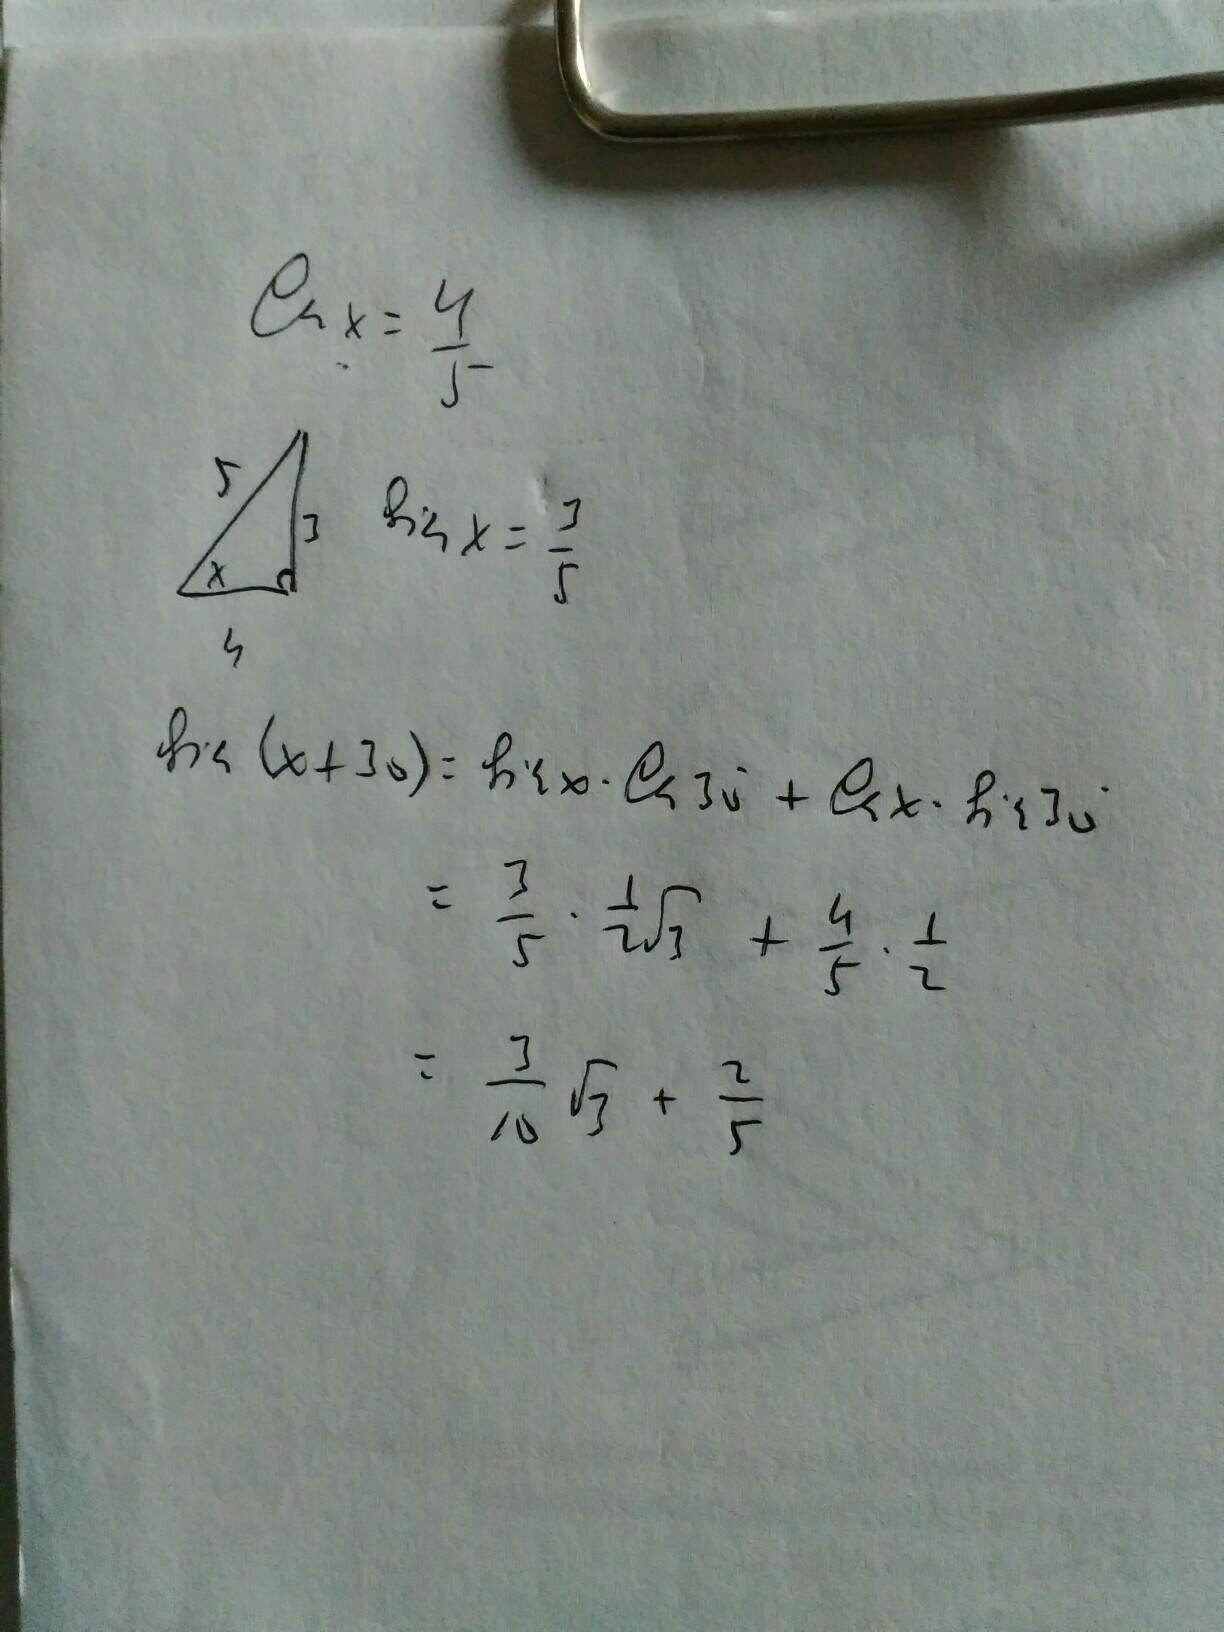 Cos x = 4/5
5
3
x
4
sin x = 3/5
sin (x+30) = sin x · Cos 30° + Cos x · sin 30°
= 3/5 · 1/2 √3 + 4/5 · 1/2
= 3/10 √3 + 2/5